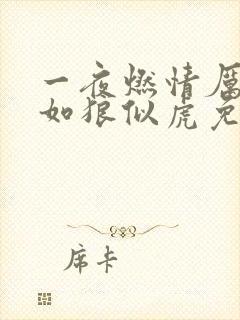 一夜燃情厲
如狼似虎免
席卡